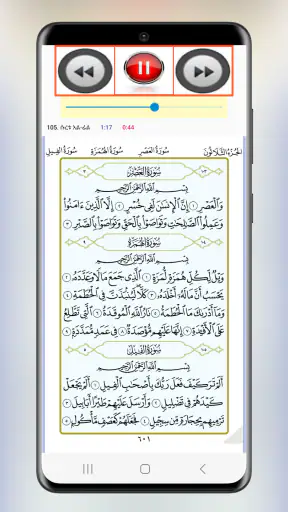 105. ሱረቱ አል-ፊል 1:17 0:44
الجزء الثلاثون سورة العصر سورة الهمزة سورة الفيل
١٠٣ سُورَةُ الْعَصْرِ ٣
بِسْمِ اللَّهِ الرَّحْمَٰنِ الرَّحِيمِ
وَالْعَصْرِ ١ إِنَّ الْإِنسَانَ لَفِي خُسْرٍ ٢ إِلَّا الَّذِينَ ءَامَنُوا
وَعَمِلُوا الصَّالِحَاتِ وَتَوَاصَوْا بِالْحَقِّ وَتَوَاصَوْا بِالصَّبْرِ ٣
١٠٤ سُورَةُ الْهُمَزَةِ ٩
بِسْمِ اللَّهِ الرَّحْمَٰنِ الرَّحِيمِ
وَيْلٌ لِّكُلِّ هُمَزَةٍ لُّمَزَةٍ ١ الَّذِي جَمَعَ مَالًا وَعَدَّدَهُ ٢
يَحْسَبُ أَنَّ مَالَهُ أَخْلَدَهُ ٣ كَلَّا لَيُنبَذَنَّ فِي الْحُطَمَةِ ٤
وَمَا أَدْرَاكَ مَا الْحُطَمَةُ ٥ نَارُ اللَّهِ الْمُوقَدَةُ ٦ الَّتِي تَطَّلِعُ
عَلَى الْأَفْئِدَةِ ٧ إِنَّهَا عَلَيْهِم مُّؤْصَدَةٌ ٨ فِي عَمَدٍ مُّمَدَّدَةٍ ٩
١٠٥ سُورَةُ الْفِيلِ ٥
بِسْمِ اللَّهِ الرَّحْمَٰنِ الرَّحِيمِ
أَلَمْ تَرَ كَيْفَ فَعَلَ رَبُّكَ بِأَصْحَابِ الْفِيلِ ١ أَلَمْ يَجْعَلْ
كَيْدَهُمْ فِي تَضْلِيلٍ ٢ وَأَرْسَلَ عَلَيْهِمْ طَيْرًا أَبَابِيلَ ٣
تَرْمِيهِم بِحِجَارَةٍ مِّن سِجِّيلٍ ٤ فَجَعَلَهُمْ كَعَصْفٍ مَّأْكُولٍ ٥
٦٠١